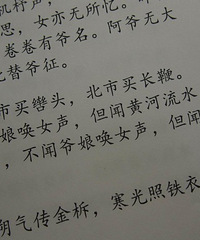 机杼声,
思,女亦无所忆。昨
卷卷有爷名。阿爷无大
替爷征。
市买辔头,北市买长鞭。
娘唤女声,但闻黄河流水
,不闻爷娘唤女声,但闻
朔气传金柝,寒光照铁衣